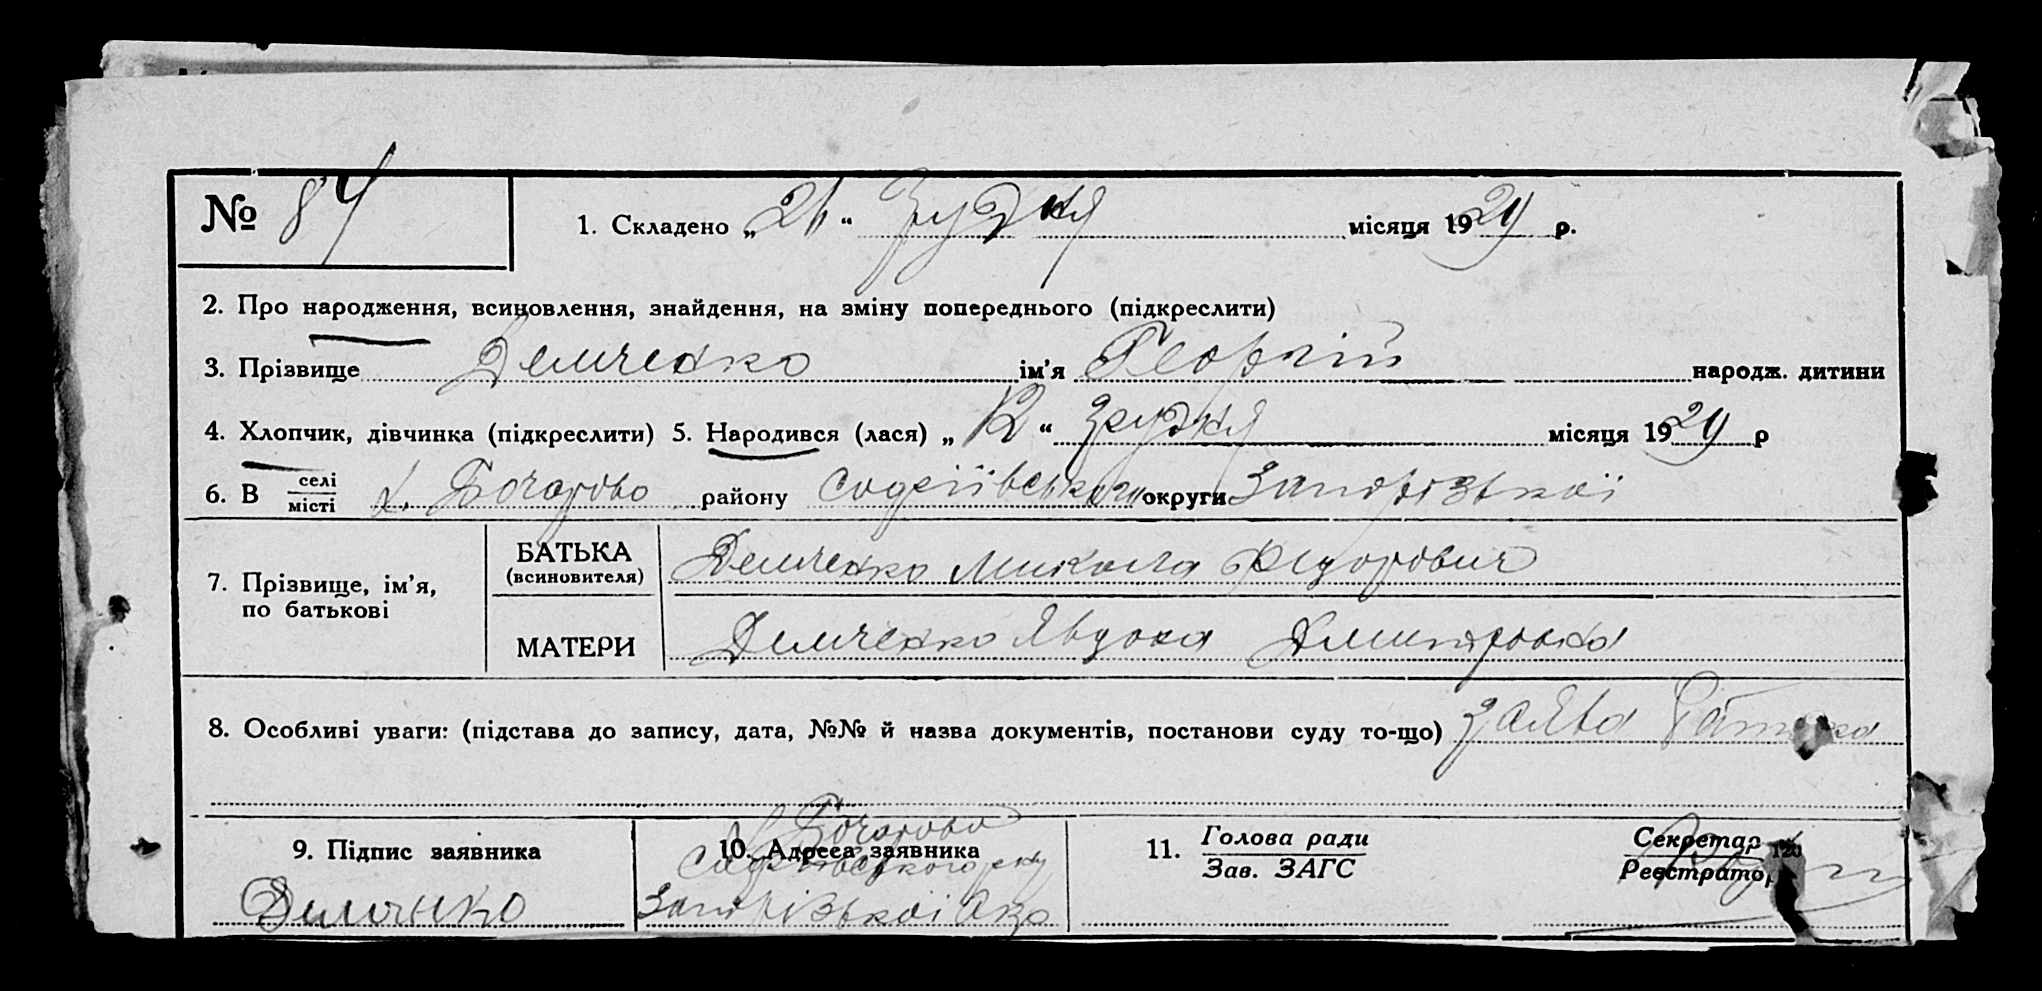 № 84
1. Складено „21“ Грудня місяця 1929 р.
2. Про народження, всиновлення, знайдення, на зміну попереднього (підкреслити)
3. Прізвище Демченко ім’я Георгій народж. дитини
4. Хлопчик, дівчинка (підкреслити) 5. Народився (лася) „12“ грудня місяця 1929 р
6. В селі/місті х. Бочарово району Софіївського округи Запорізької
7. Прізвище, ім’я, по батькові
БАТЬКА (всиновителя) Демченко Микола Федорович
МАТЕРИ Демченко Явдоха Дмитровна
8. Особливі уваги: (підстава до запису, дата, №№ й назва документів, постанови суду то-що) заява батька
9. Підпис заявника
Демченко
10. Адреса заявника
х. Бочарово
Софіївського р-ну
Запорізької Окр
11. Голова ради
Зав. ЗАГС
Секретар
Реєстратор